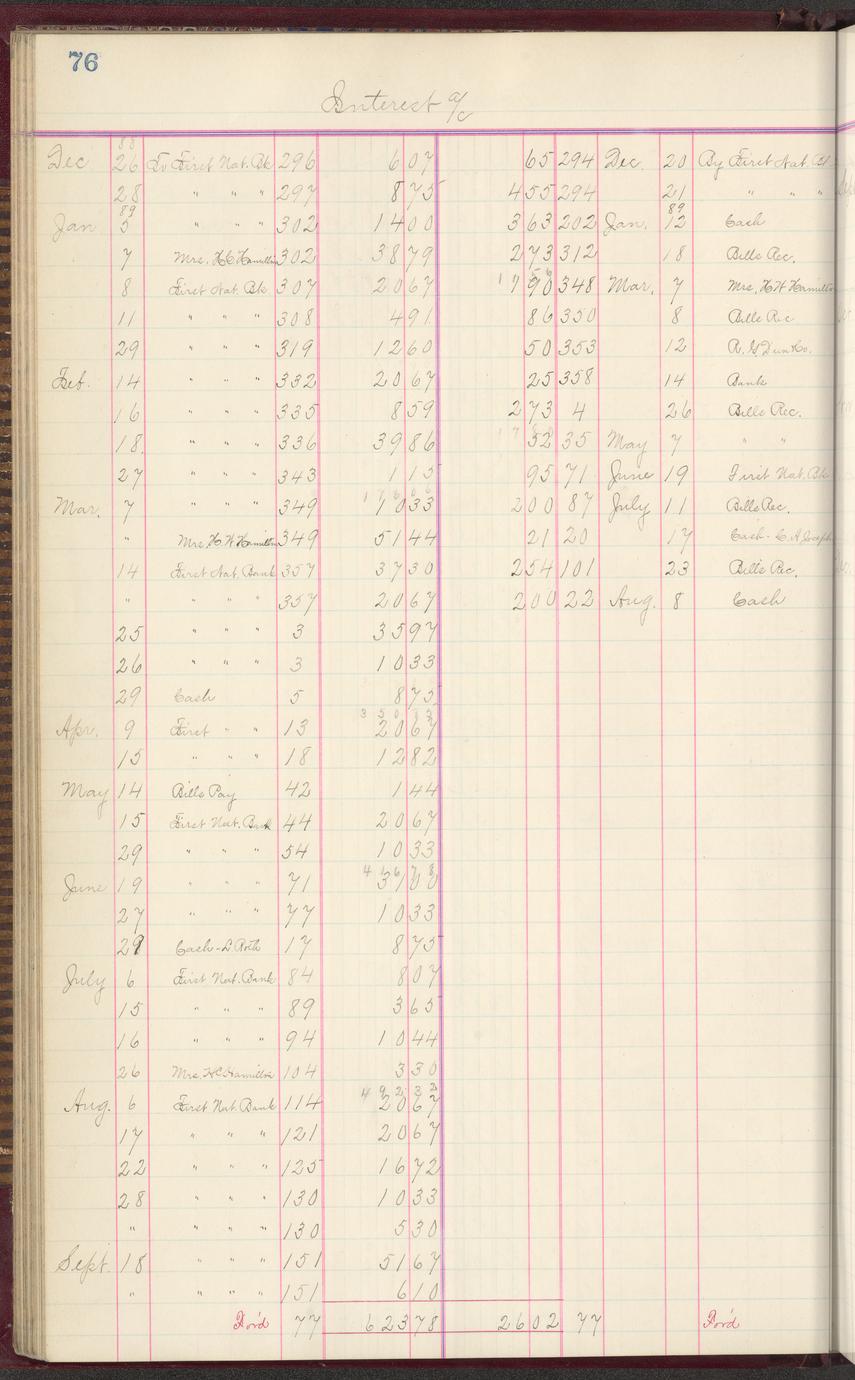 76
Interest a/c
88
Dec 26 To First Nat. Bk 296 6 07 65 294 Dec. 20 By First Nat. Bk
28 " " " 297 8 75 4 55 294 21 " " "
89 89
Jan 5 " " " 302 14 00 3 63 202 Jan. 12 Cash
7 Mrs. H C Hamilton 302 38 79 2 73 312 18 Bills Rec.
8 First Nat. Bk. 307 20 67 90 348 Mar. 7 Mrs. H W Hamilton
11 " " " 308 4 91 86 350 8 Bills Rec
29 " " " 319 12 60 50 353 12 R. G Dun & Co.
Feb. 14 " " " 332 20 67 25 358 14 Bank
16 " " " 335 8 59 2 73 4 26 Bills Rec.
18. " " " 336 39 86 52 35 May 7 " "
27 " " " 343 1 15 95 71 June 19 First Nat. Bk
Mar. 7 " " " 349 10 33 2 00 87 July 11 Bills Rec.
" Mrs. H. W Hamilton 349 51 44 21 20 17 Cash - C. A Joseph
14 First Nat. Bank 357 37 30 2 54 101 23 Bills Rec.
" " " " 357 20 67 2 00 22 Aug. 8 Cash
25 " " " 3 35 97
26 " " " 3 10 33
29 Cash 5 8 75
Apr. 9 First " " 13 20 67
15 " " " 18 12 82
May 14 Bills Pay 42 1 44
15 First Nat. Bank 44 20 67
29 " " " 54 10 33
June 19 " " " 71 31 00
27 " " " 77 10 33
29 Cash - L. Roth 17 8 75
July 6 First Nat. Bank 84 8 07
15 " " " 89 3 65
16 " " " 94 10 44
26 Mrs. H C Hamilton 104 3 30
Aug. 6 First Nat. Bank 114 20 67
17 " " " 121 20 67
22 " " " 125 16 72
28 " " " 130 10 33
" " " " 130 5 30
Sept. 18 " " " 151 51 67
" " " " 151 6 10
For'd 77 623 78 26 02 77 For'd